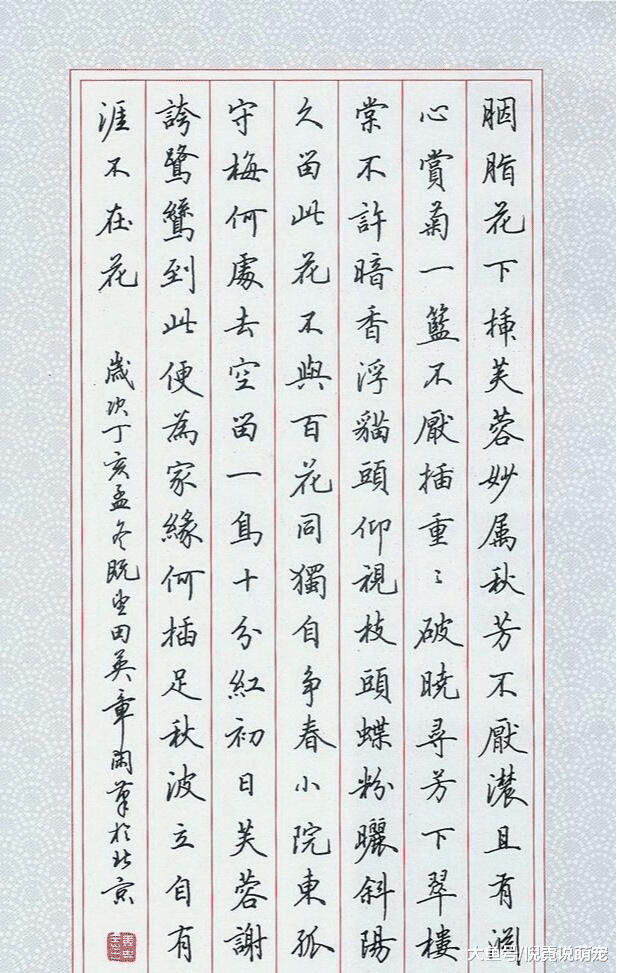 胭脂花下插芙蓉妙属秋芳不厭濃且有
心賞菊一籃不厭插重々破曉尋芳下翠樓
棠不許暗香浮貓頭仰視枝頭蝶粉曬斜陽
久留此花不與百花同獨自争春小院東孤
守梅何處去空留一鳥十分紅初日芙蓉謝
誇鷺鷥到此便為家緣何插足秋波立自有
涯不在花
歲次丁亥孟冬既望田英章閑筆於北京
大鱼号/倪霓说萌宠